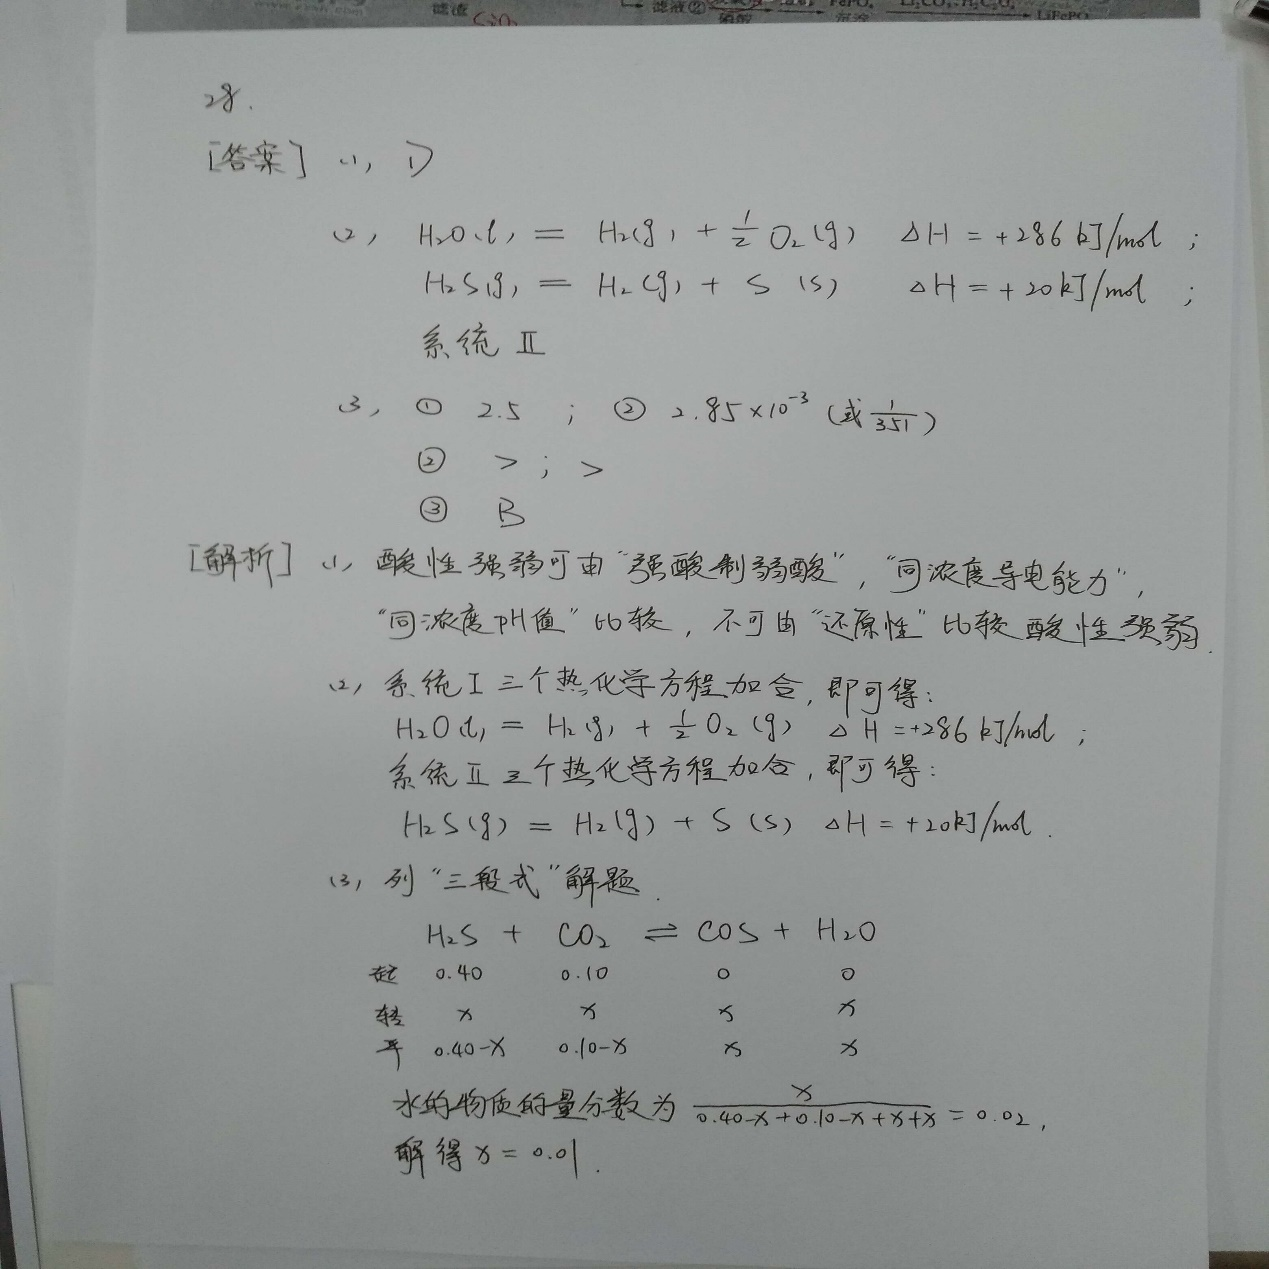 滤渣
SiO₂
滤液②
FePO₄
LiFePO₄
28.
[答案] (1) D
(2) H₂O(l) = H₂(g) + 1/2 O₂(g) △H = +286 kJ/mol ;
H₂S(g) = H₂(g) + S (s) △H = +20 kJ/mol ;
系统 Ⅱ
(3) ① 2.5 ; ② 2.85×10⁻³ (或 1/351)
② > ; >
③ B
[解析] (1) 酸性强弱可由“强酸制弱酸”, “同浓度导电能力”,
“同浓度pH值”比较, 不可由“还原性”比较酸性强弱.
(2) 系统Ⅰ三个热化学方程加合, 即可得:
H₂O(l) = H₂(g) + 1/2 O₂(g) △H = +286 kJ/mol ;
系统Ⅱ三个热化学方程加合, 即可得:
H₂S(g) = H₂(g) + S (s) △H = +20kJ/mol .
(3) 列“三段式”解题.
H₂S + CO₂ ⇌ COS + H₂O
起 0.40 0.10 0 0
转 x x x x
平 0.40-x 0.10-x x x
水的物质的量分数为 x/(0.40-x+0.10-x+x+x) = 0.02,
解得 x = 0.01.